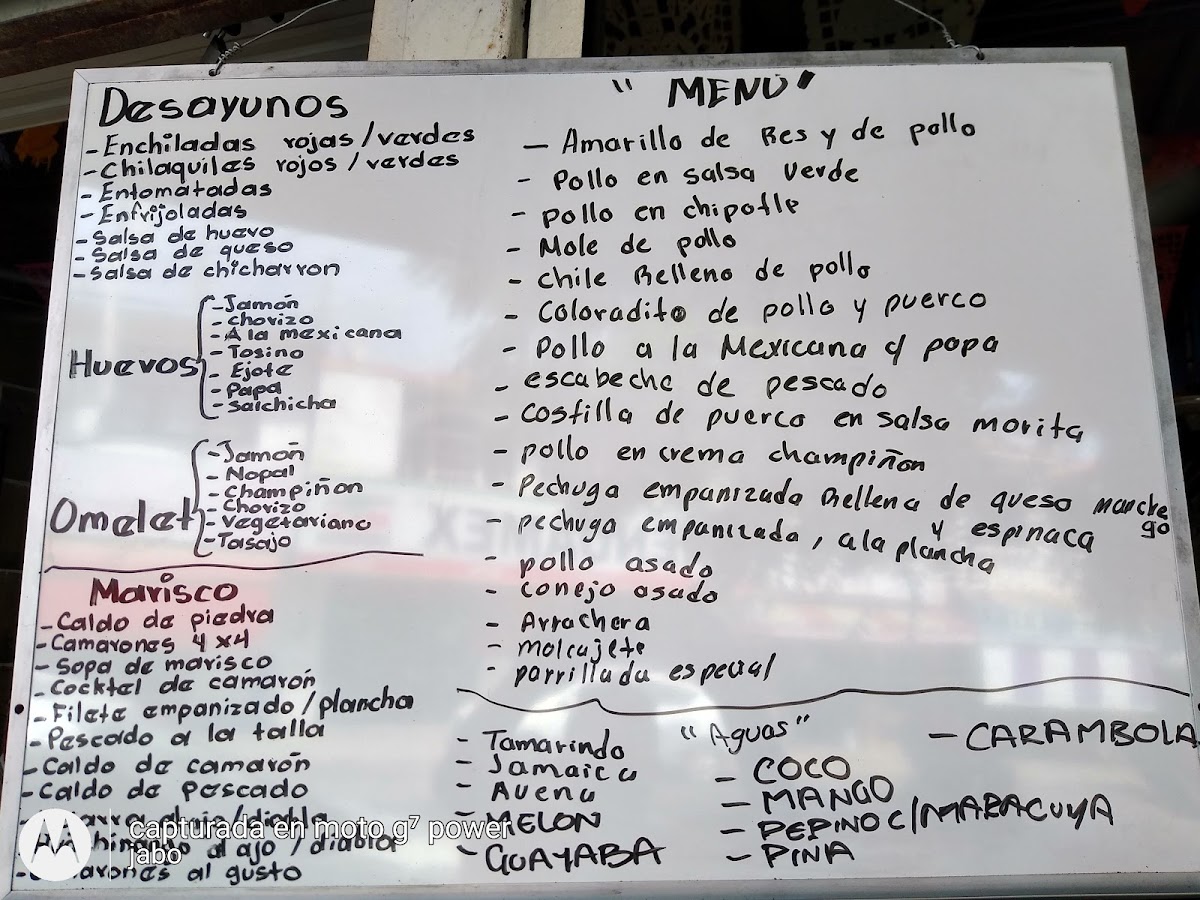 Desayunos
- Enchiladas rojas/verdes
- Chilaquiles rojos/verdes
- Entomatadas
- Enfrijoladas
- Salsa de huevo
- Salsa de queso
- Salsa de chicharron
Huevos
- Jamón
- chorizo
- A la mexicana
- Tosino
- Ejote
- Papa
- Salchicha
Omelet
- Jamón
- Nopal
- Champiñon
- Chorizo
- Vegetariano
- Tasajo
Marisco
- Caldo de piedra
- Camarones 4x4
- Sopa de marisco
- Cocktel de camarón
- Filete empanizado/plancha
- Pescado a la talla
- Caldo de camarón
- Caldo de pescado
al ajo/diabla
al gusto
"MENÚ"
- Amarillo de Res y de pollo
- Pollo en salsa verde
- pollo en chipotle
- Mole de pollo
- chile Relleno de pollo
- Coloradito de pollo y puerco
- Pollo a la Mexicana c/ papa
- escabeche de pescado
- costilla de puerco en salsa morita
- pollo en crema champiñon
- Pechuga empanizada Rellena de queso manchego
y espinaca
- pechuga empanizada, a la plancha
- pollo asado
- conejo asado
- Arrachera
- molcajete
- parrillada especial
"Aguas"
- Tamarindo
- Jamaica
- Avena
- MELON
- GUAYABA
- COCO
- MANGO
- PEPINO C/MARACUYA
- PINA
- CARAMBOLA
capturada en moto g⁷ power
jabo